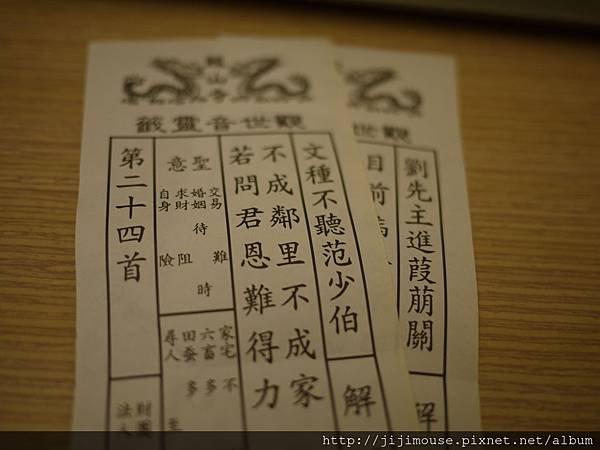 龍山寺
觀世音靈籤
文種不聽范少伯
解
不成鄰里不成家
若問君恩難得力
聖意
交易 難
婚姻 待時
求財 阻
自身 險
家宅 不
六畜 多
田蚕 多
尋人 至
第二十四首
財團
法人
觀世
劉先主進葭萠關
解
目前
http://jijimouse.pixnet.net/album